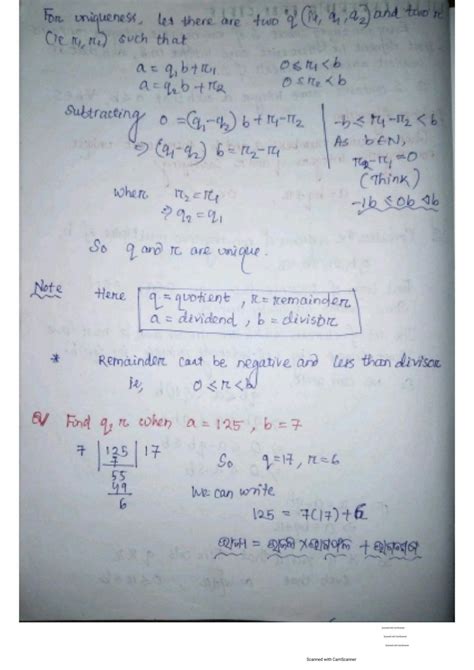 For uniqueness, let there are two q (ie, q₁, q₂) and two r
(ie r₁, r₂) such that
a = q₁b + r₁ 0 ≤ r₁ < b
a = q₂b + r₂ 0 ≤ r₂ < b
Subtracting 0 = (q₁-q₂) b + r₁-r₂
⇒ (q₁-q₂) b = r₂-r₁
-b ≤ r₁-r₂ < b
As b ∈ N,
r₂-r₁ = 0
(Think)
-1b ≤ 0b < 1b
when r₂ = r₁
⇒ q₂ = q₁
So q and r are unique.
Note Here q = quotient, r = remainder
a = dividend, b = divisor
* Remainder can't be negative and less than divisor
ie, 0 ≤ r < b
Q/ Find q, r when a = 125, b = 7
7 | 125 | 17
7
55
49
6
So q = 17, r = 6
We can write
125 = 7(17) + 6
ଭାଜ୍ୟ = ଭାଜକ × ଭାଗଫଳ + ଭାଗଶେଷ
Scanned with CamScanner